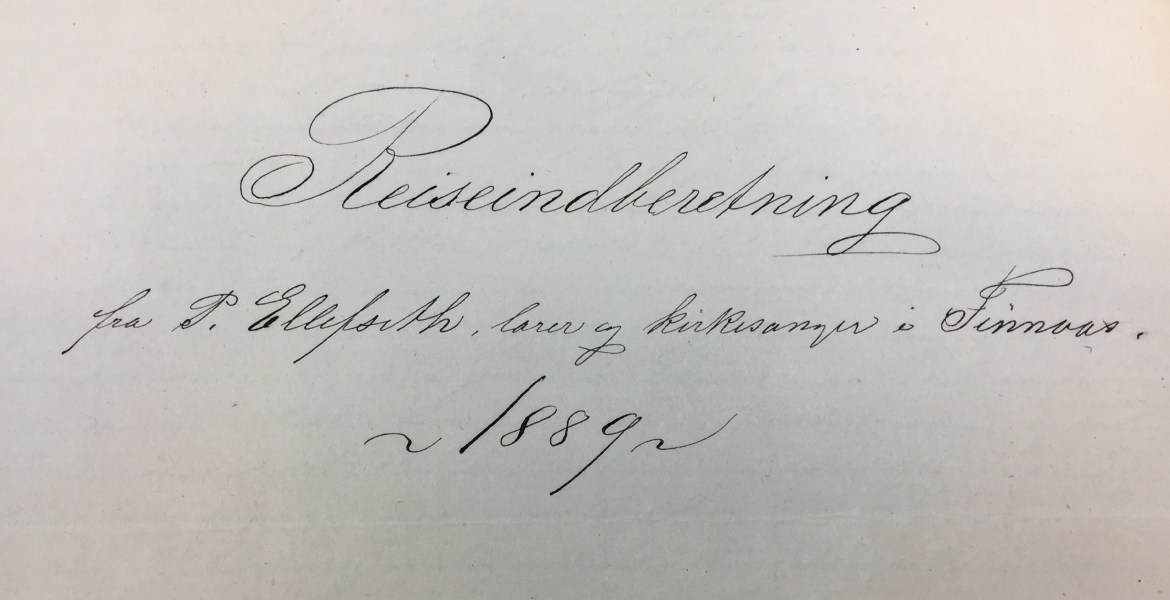 Reiseindberetning
fra P. Ellefseth, lærer og kirkesanger i Finnaas.
~ 1889 ~